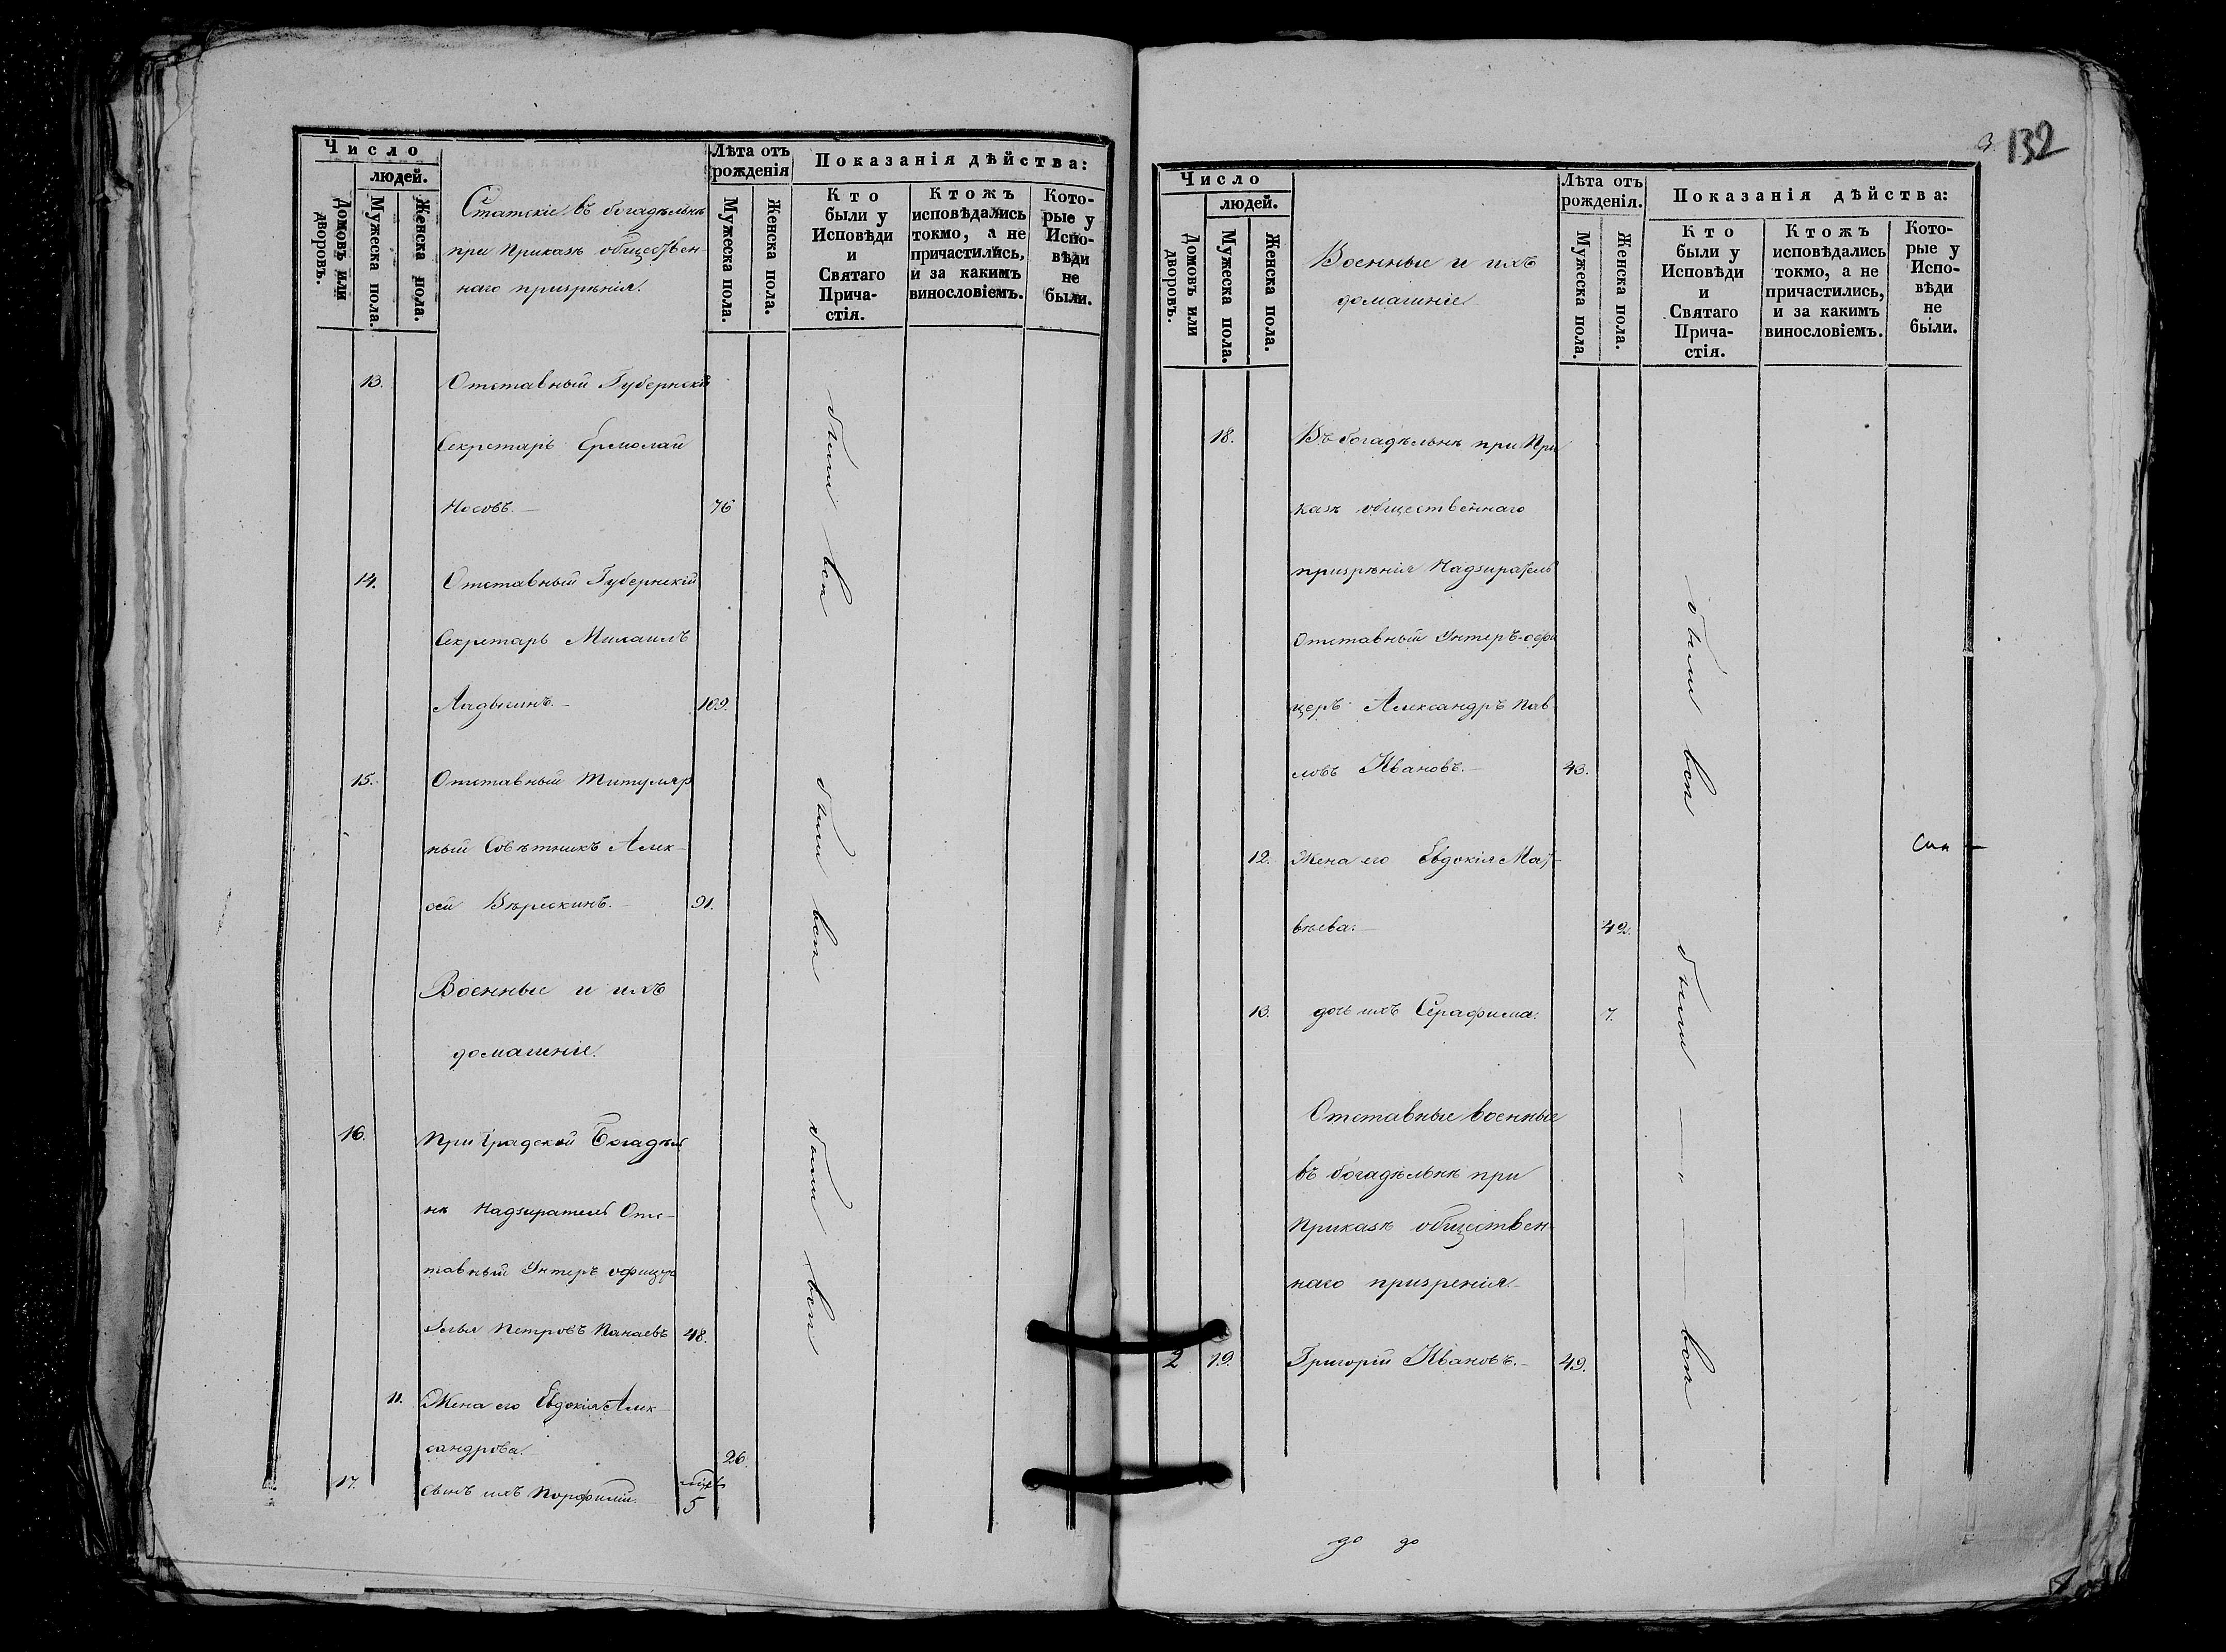 Число
людей.
Домовъ или дворовъ.
Мужеска пола.
Женска пола.
Статскіе въ богадѣльнѣ
при Приказѣ обществен-
наго призрѣнія.
Лѣта отъ рожденія
Мужеска пола.
Женска пола.
Показанія дѣйства:
Кто были у Исповѣди и Святаго Прича-стія.
Ктожъ исповѣдались токмо, а не причастились, и за какимъ винословіемъ.
Кото-рые у Испо-вѣди не были.
13. Отставный Губернскій
Секретарь Ермолай
Носовъ.— 76
были всѣ
14. Отставный Губернскій
Секретарь Михаилъ
Ладыгинъ.— 109.
15. Отставный Титуляр
ный Совѣтникъ Алек-
сѣй Вѣрескинъ.— 91.
были всѣ
Военные и ихъ
домашніе.
16. При Градской Богадѣль
нѣ Надзиратель Отс-
тавный Унтеръ офицеръ
Илья Петровъ Панаевъ 48.
были всѣ
11. Жена его Евдокія Алек-
сандрова.— 26.
17. Сынъ ихъ Порфирій.— 5
132
Число
людей.
Домовъ или дворовъ.
Мужеска пола.
Женска пола.
Военные и ихъ
домашніе
Лѣта отъ рожденія.
Мужеска пола.
Женска пола.
Показанія дѣйства:
Кто были у Исповѣди и Святаго Прича-стія.
Ктожъ исповѣдались токмо, а не причастились, и за какимъ винословіемъ.
Кото-рые у Испо-вѣди не были.
18. Въ богадѣльнѣ при При
казѣ общественнаго
призрѣнія Надзиратель
Отставный Унтеръ-офи
церъ Александръ Пав-
ловъ Ивановъ.— 43.
были всѣ
12. Жена его Евдокія Мат-
вѣева.— 42.
13. дочь ихъ Серафима. 7.
Отставные военные
въ богадѣльнѣ при
Приказѣ обществен-
наго призренія.
2 19. Григорій Ивановъ.— 49.
были — " — всѣ
до до